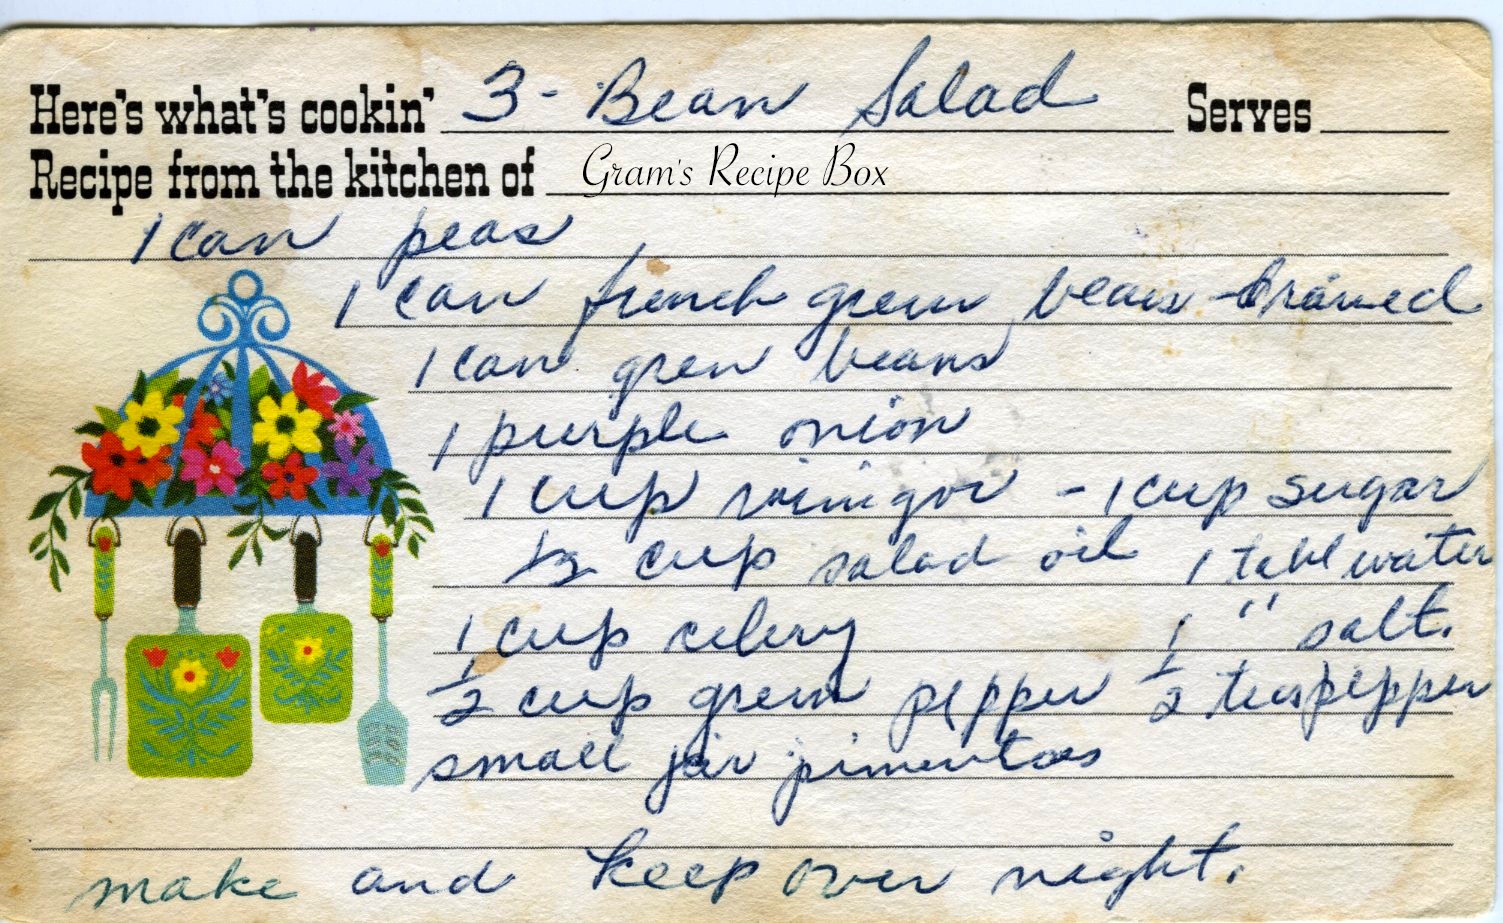 Here's what's cookin' 3-Bean Salad Serves
Recipe from the kitchen of Gram's Recipe Box
1 can peas
1 can french green beans - drained
1 can green beans
1 purple onion
1 cup vinigar - 1 cup sugar
1/2 cup salad oil 1 tabl water
1 cup celery 1 " salt.
1/2 cup green pepper 1/2 teas pepper
small jar pimentoes
make and keep over night.